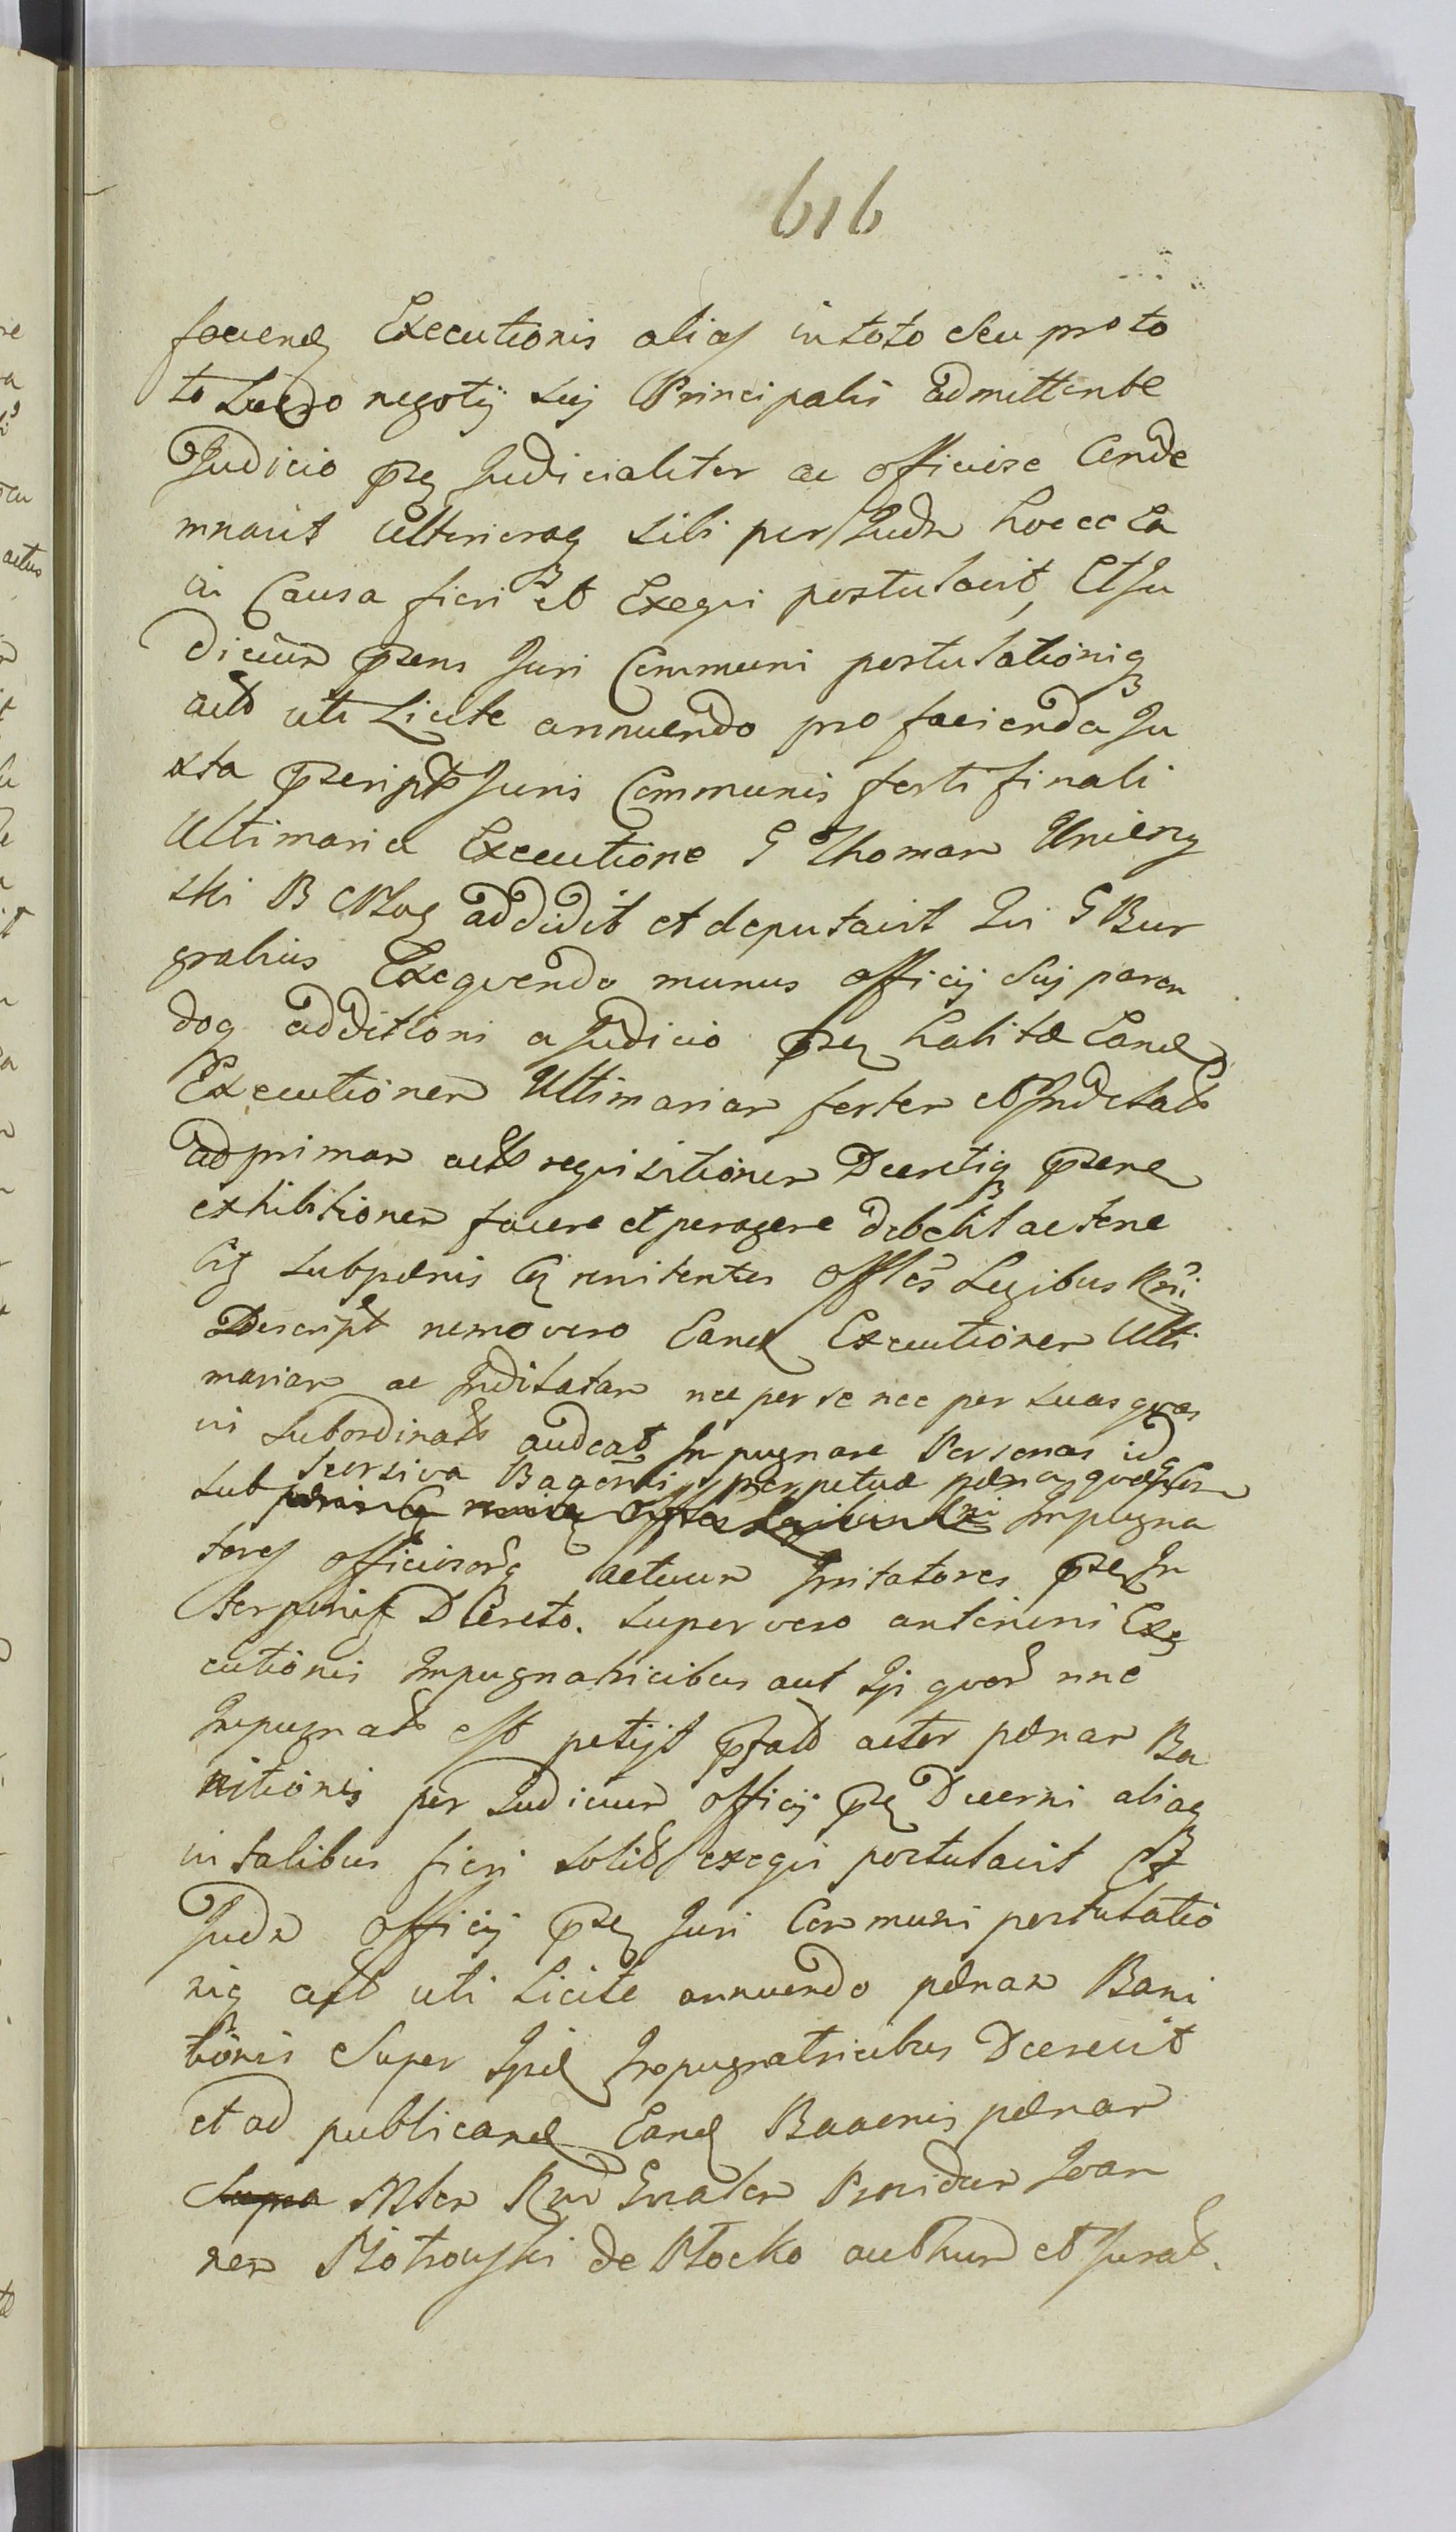 616
faciend Executionis alias in toto seu pro to
to Lucro negotij sui Principalis admittente
Judicio pns Judicialiter ac officiose Conde
mnavit ulterioraq sibi per Judm hocce Ea
in Causa fieri et Exequi postulavit, Et Ju
dicium psens Juri Communi postulationiq
actis uti Licite annuendo pro facienda Ju
xta pscripta Juris Communis forti finali
Ultimaria Executione G Thomam Unierzy
ski B C Ploc addidit et deputavit Qui G Bur
grabius Exequendo munus officij Sui paren
doq additioni a Judicio psen habitæ Eand
Executionem Ultimariam fortem et Inditat
ad primam actis requisitionem Decretiq psent
exhibitionem facere et peragere debebit ac tene
bitr sub pænis in renitentes Offles Legibus Rni
Descript nemo vero Eand Executionem Ulti
mariam ac Inditatam nec per se nec per suas quas
vis subordinatas audeat Impugnare Personas id
scorsiva Baaonis perpetuæ pæna quosvis
sub Impugna
tores officiosorq actuum Irritatores psen In
terposit Decreto. super vero antenni Exe
cutionis Impugnatricibus aut Ipi quor nne
Impugnat est petijt pfat actor pænam Ba
nitionis per Judicium officij psen Decerni aliaq
in talibus fieri solit exequi postulavit Et
Judm officij psen Juri Communi postulatio
niq act uti Licite annuendo pænam Bani
tionis Super Ipis Impugnatricibus Decrevit
et ad publicand Eand Baaonis pænam
Supra Mlem Rni Gnalem Providum Joan
nem Piotrowski de Plocko authum et Jurat.